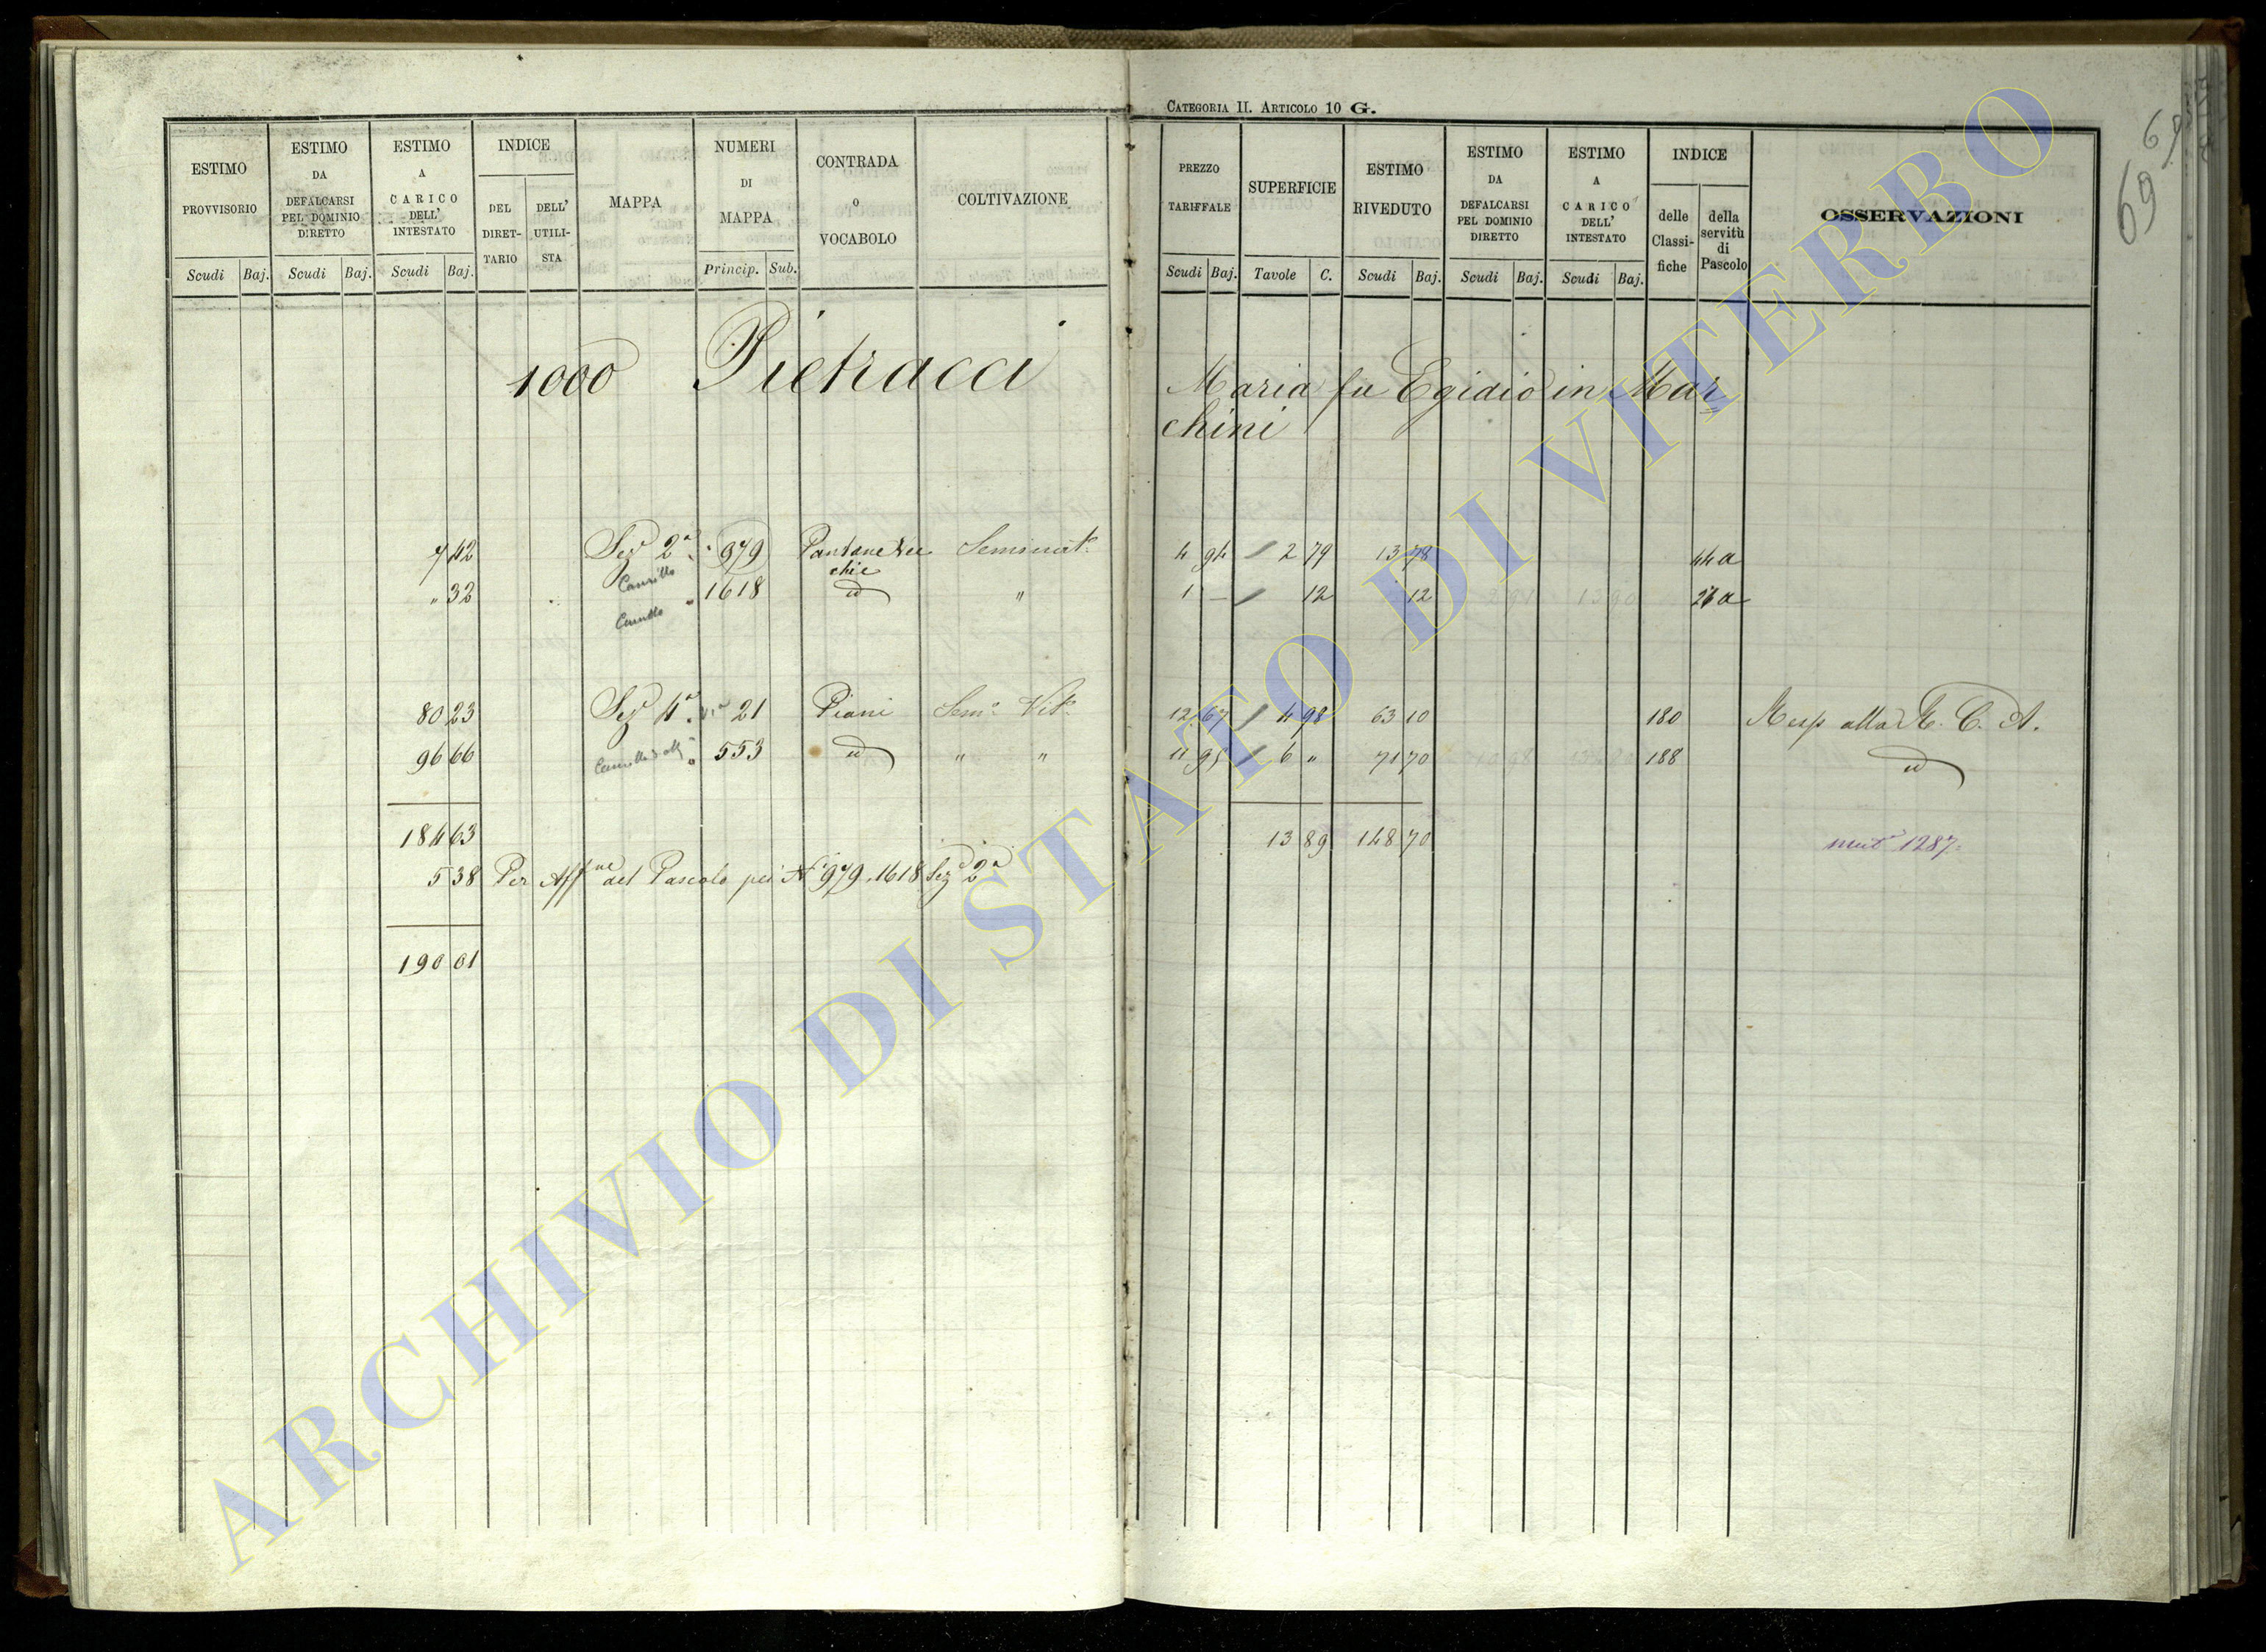 CATEGORIA II. ARTICOLO 10 G.
69
69
ESTIMO PROVVISORIO
ESTIMO DA DEFALCARSI PEL DOMINIO DIRETTO
ESTIMO A CARICO DELL' INTESTATO
INDICE
DEL DIRET-TARIO
DELL' UTILI-STA
MAPPA
NUMERI DI MAPPA
CONTRADA O VOCABOLO
COLTIVAZIONE
Scudi Baj. Scudi Baj. Scudi Baj. Princip. Sub.
PREZZO TARIFFALE
SUPERFICIE
ESTIMO RIVEDUTO
ESTIMO DA DEFALCARSI PEL DOMINIO DIRETTO
ESTIMO A CARICO DELL' INTESTATO
INDICE
delle Classi-fiche
della servitù di Pascolo
OSSERVAZIONI
Scudi Baj. Tavole C. Scudi Baj. Scudi Baj. Scudi Baj.
1000 Pietracci Maria fu Egidio in Mar=
chini
7 42 Sez. 2a 979 Pantane Vec Seminat. 4 94 2 79 13 78 44 a
chie
" 32 1618 id " 1 — 12 12 26 a
80 23 Sez. 4a 21 Piani Sem. Vit. 12 67 4 98 63 10 180 Resp alla R. C. A.
96 66 553 id " " 11 95 6 " 71 70 188 id
184 63 13 89 148 70 mut 1287
5 38 Per Aff.ne del Pascolo pei N. 979. 1618 Sez. 2a
190 01
ARCHIVIO DI STATO DI VITERBO